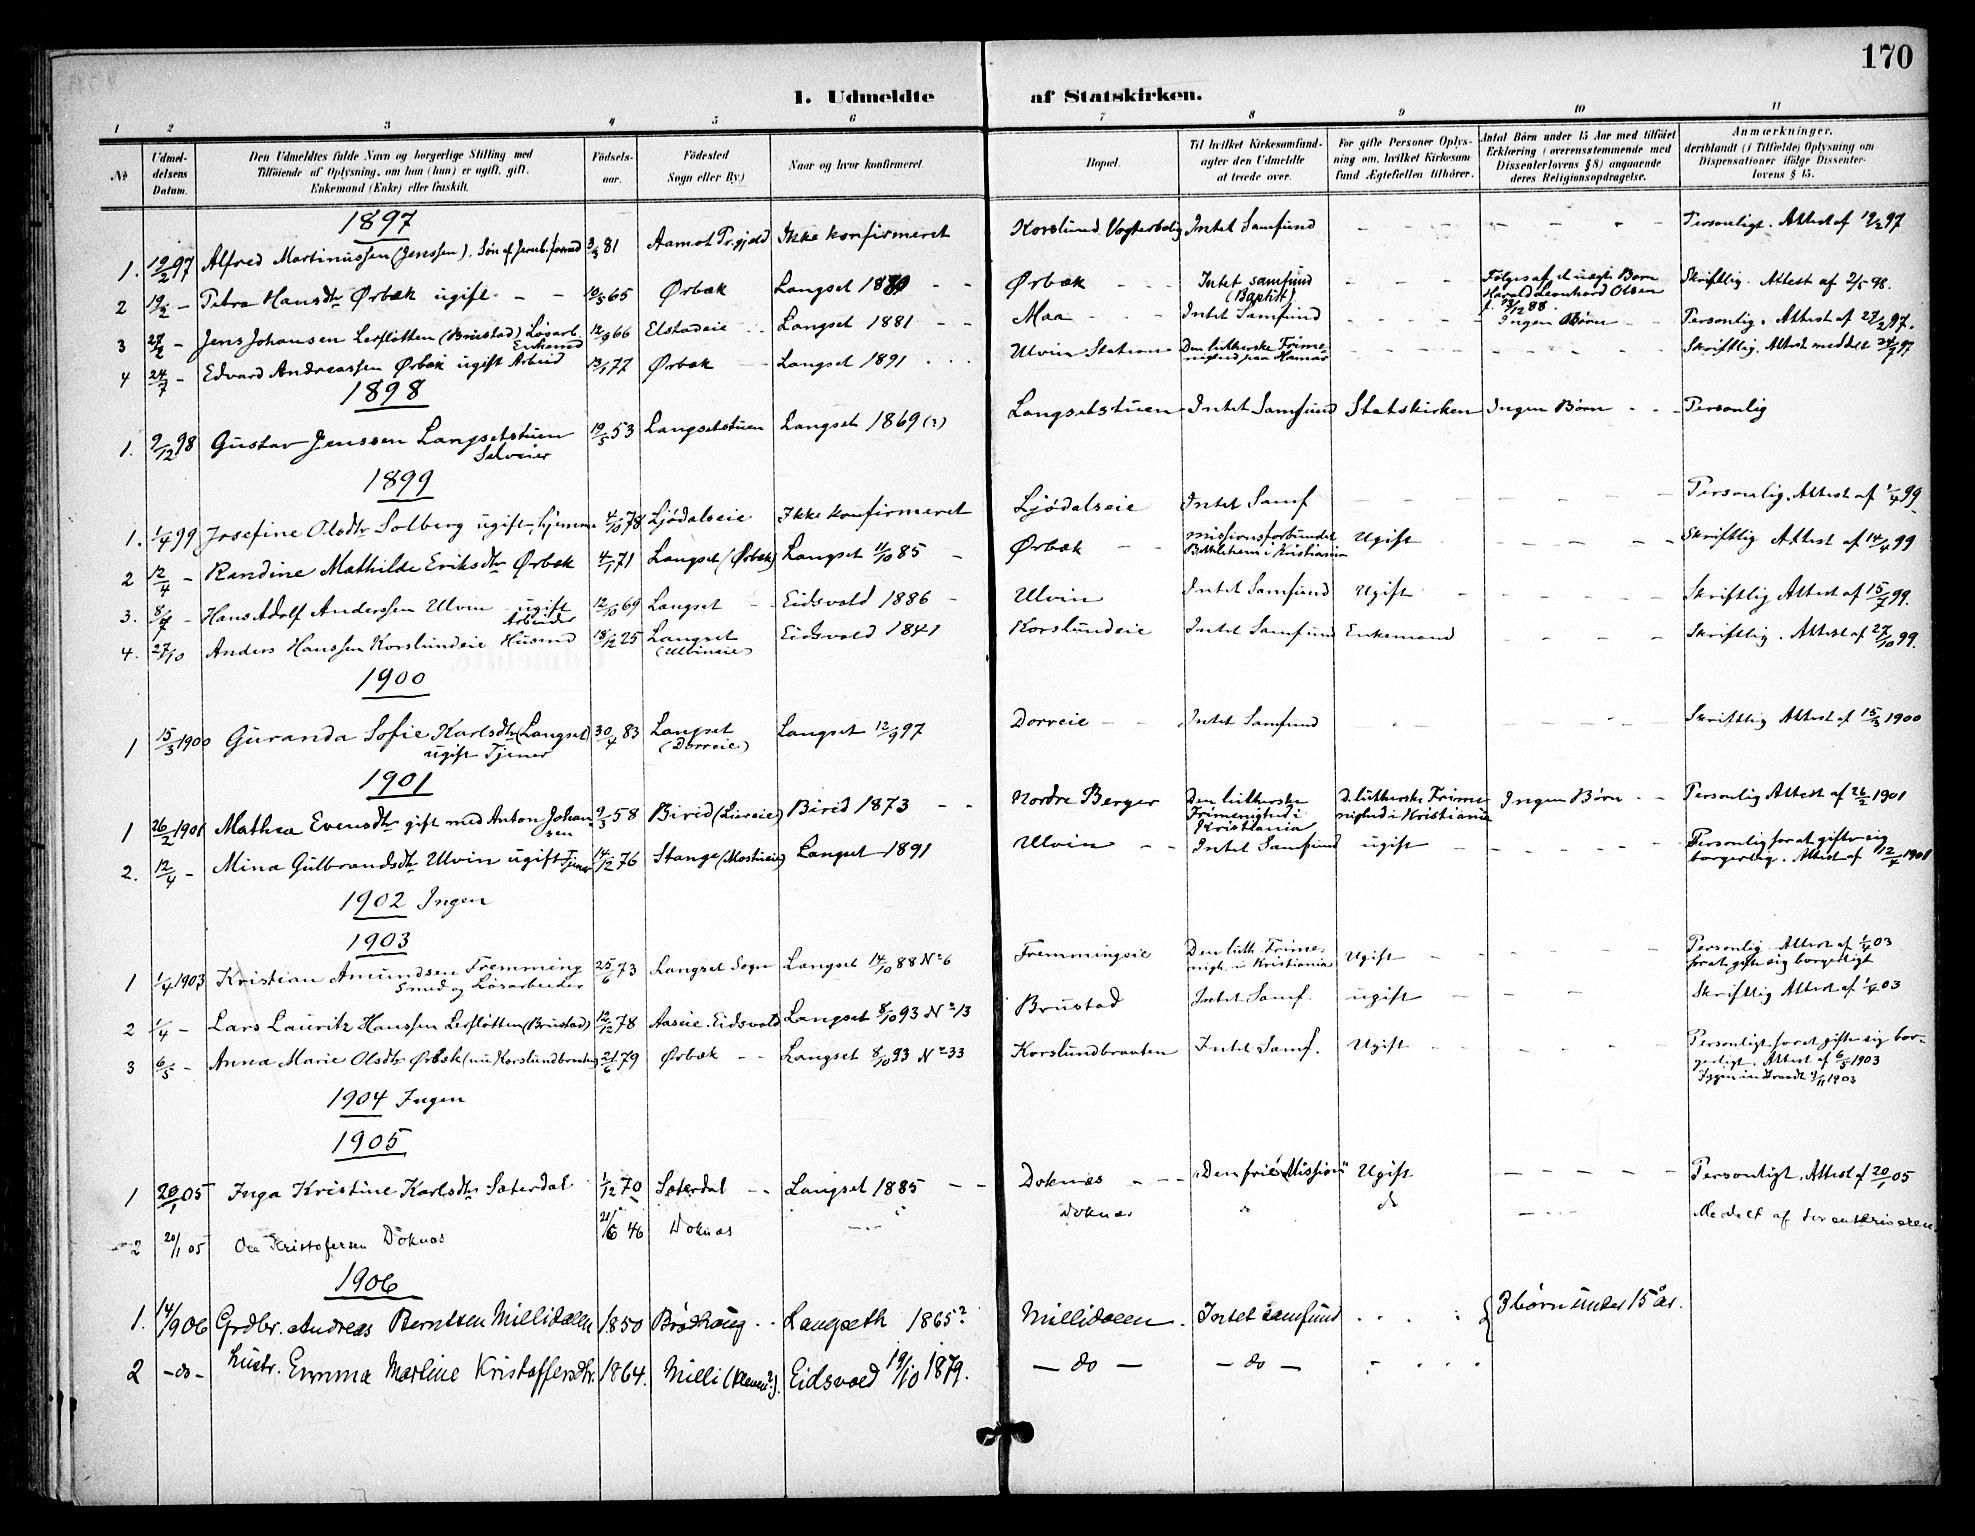 170
1. Udmeldte af Statskirken.
1 2 3 4 5 6 7 8 9 10 11
No
Udmeldelsens Datum.
Den Udmeldtes fulde Navn og borgerlige Stilling med Tilføiende af Oplysning, om han (hun) er ugift, gift, Enkemand (Enke) eller fraskilt.
Fødselsaar.
Fødested Sogn eller By)
Naar og hvor konfirmeret.
Bopæl.
Til hvilket Kirkesamfund agter den Udmeldte at træde over.
For gifte Personer Oplysning om, hvilket Kirkesamfund Ægtefællen tilhører.
Antal Børn under 15 Aar med tilføiet Erklæring (overensstemmende med Dissenterlovens § 8) angaaende deres Religionsopdragelse.
Anmærkninger, deriblandt (i Tilfælde) Oplysning om Dispensationer ifølge Dissenterlovens § 15.
1897
1. 19/2 97 Alfred Martinussen (Jenssen). Søn af 3/3 81 Aamot Pr.gjeld Ikke konfirmeret Korslund Vogterbolig Intet Samfund - - - - Personligt. Attest af 19/2 97
2 19/2 - Petra Hansdtr Ørbæk ugift - - 10/5 65 Ørbæk Langset 1879 - - Ørbæk - - - Intet samfund (Baptist) - - - Følges af et uægte Barn Harald Leonhard Olsen f. 13/12 88. Skriftlig. Attest af 2/5 98.
3 27/2 - Jens Johansen Lerfløtten (Brustad) Løsarb. Enkemd 12/9 66 Elstadeie - - Langset 1881 - - Maa - - - Intet Samfund - - - Ingen Børn - - Personlig. Attest af 27/2 97.
4 24/7 - Edvard Andreassen Ørbæk ugift Arbeid 13/1 77 Ørbæk - Langset 1891 . . . Ulvin Station Den lutherske Frimenighed paa Hamar - - - - Skriftlig. Attest meddelt 24/7 97
1898
1. 9/12 98 Gustav Jenssen Langsetstuen Selveier 19/5 53 Langsetstuen Langset 1869 (?) Langsetstuen Intet Samfund Statskirken Ingen Børn - - - Personlig
1899
1. 1/4 99 Josefine Olsdtr Solberg ugift, hjemme 4/10 78 Ljødalseie Ikke konfirmeret Ljødalseie Intet Samf - - - - Personlig. Attest af 1/4 99
2 12/4 - Randine Mathilde Eriksdtr Ørbæk 4/1 71 Langset (Ørbæk) Langset 11/10 85 - Ørbæk - - missionsforbundet Bethlehem i Kristiania Ugift - - - - Skriftlig Attest af 14/4 99
3. 8/7 - Hans Adolf Anderssen Ulvin - ugift Arbeider 12/10 69 Langset - Eidsvold 1886 - Ulvin Intet Samfund Ugift - - - - Skriftlig Attest af 15/7 99.
4. 27/10 Anders Hanssen Korslundeie Husmd 13/12 25 Langset (Ulvineie) Eidsvold 1841 Korslundeie Intet Samfund Enkemand - - - - Skriftlig. Attest af 27/10 99.
1900
1 15/3 1900 Guranda Sofie Karlsdtr (Langset) ugift Tjener 30/4 83 Langset (Dorreie) Langset 12/9 97 Dorreie - - Intet Samfund - - - - Skriftlig Attest af 15/3 1900
1901
1 26/2 1901 Mathea Evensdtr gift med Anton Johansen 9/3 58 Birid (Liereie) Birid 1873 - - Nordre Berger Den lutherske Frimenighed i Kristiania D. lutherske Frimenighed i Kristiania Ingen Børn - - Personlig Attest af 26/2 1901
2. 12/4 - Mina Gulbrandsdtr Ulvin ugift Tjener 14/12 76 Stange (Mostueie) Langset 1891 Ulvin - - Intet Samfund ugift - - - - Personlig forat gifte sig borgerlig. Attest af 12/4 1901
1902 Ingen
1903
1 1/4 1903 Kristian Amundsen Fremming Smed og Løsarbeider 25/6 73 Langset Sogn Langset 14/10 88 No 6 Fremmingeie Den luth. Frimenigh. i Kristiania Ugift - - - - Personlig. Attest af 1/4 03 forat gifte sig borgerligt
2 1/4 - Lars Lauritz Hanssen Lerfløtten (Brustad) 12/12 78 Aaseie. Eidsvold Langset 8/10 93 No 13 Brustad Intet Samf. ugift - - - Skriftlig Attest af 1/4 03
3 6/5 - Anna Marie Olsdtr Ørbæk (nu Korslundbraaten) 21/6 79 Ørbæk - - Langset 8/10 93 No 33 Korslundbraaten Intet Samf. Ugift - - - - Personligt forat gifte sig borgerligt. Attest af 6/5 1903
Igjen indtraadt 1/11 1903
1904 Ingen
1905
1 20/1 05 Inga Kristine Karlsdtr Sæterdal 1/12 70 Sæterdal - - Langset 1885 - - Doknæs - - - "Den frie Mission" Ugift - - - - - Personligt. Attest af 20/1 05
2 20/1 05 Ole Kristofersen Doknæs 21/6 46 Doknæs - - - Doknæs do do - - - Meldt af foranskrevne.
1906
1. 14/1 1906 Grdbr. Andreas Berntsen Millidalen 1850 Brødhaug . . Langseth 1865? Millidalen . Intet samfund . . . . : { 3 børn under 15 år.
2 -do- hustr. Emma Marline Kristoffersdtr. 1864. Milli Eidsvold 19/10 1879. - do - - do - - . . .